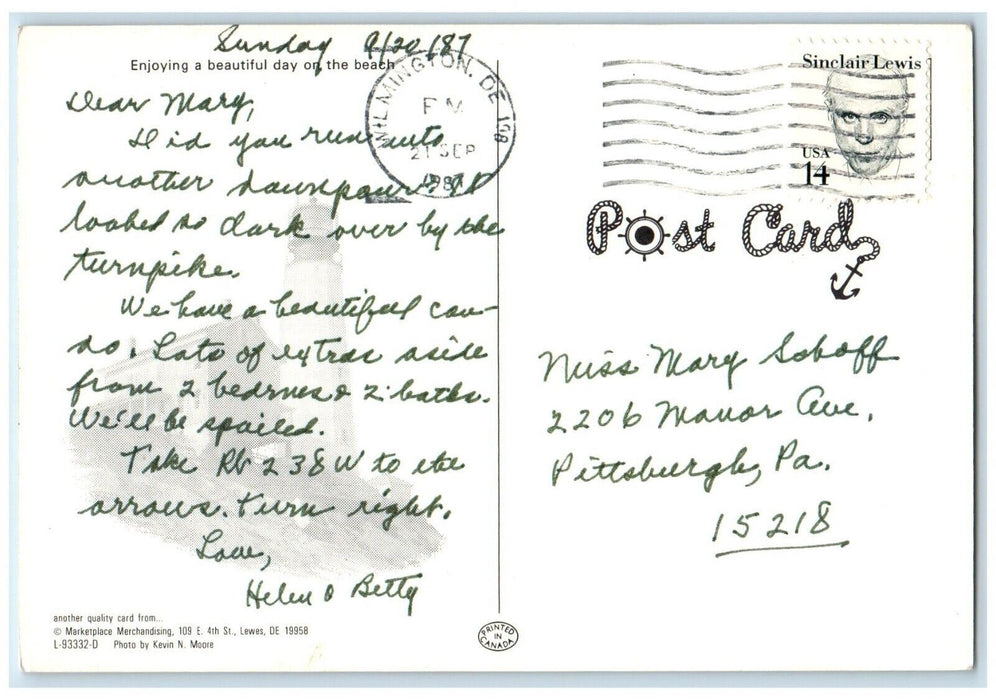 Sunday 9/20/87
Enjoying a beautiful day on the beach
Dear Mary,
Did you run into
another downpour? It
looked so dark over by the
turnpike.
We have a beautiful con-
do. Lots of extras aside
from 2 bedrms & 2 baths.
We'll be spoiled.
Take Rt 238 W to the
arrows. Turn right.
Love,
Helen & Betty
another quality card from...
© Marketplace Merchandising, 109 E. 4th St., Lewes, DE 19958
L-93332-D Photo by Kevin N. Moore
WILMINGTON, DE 198
PM
21 SEP
1987
Sinclair Lewis
USA
14
Post Card
Miss Mary Schoff
2206 Manor Ave.
Pittsburgh, Pa.
15218
PRINTED
IN
CANADA